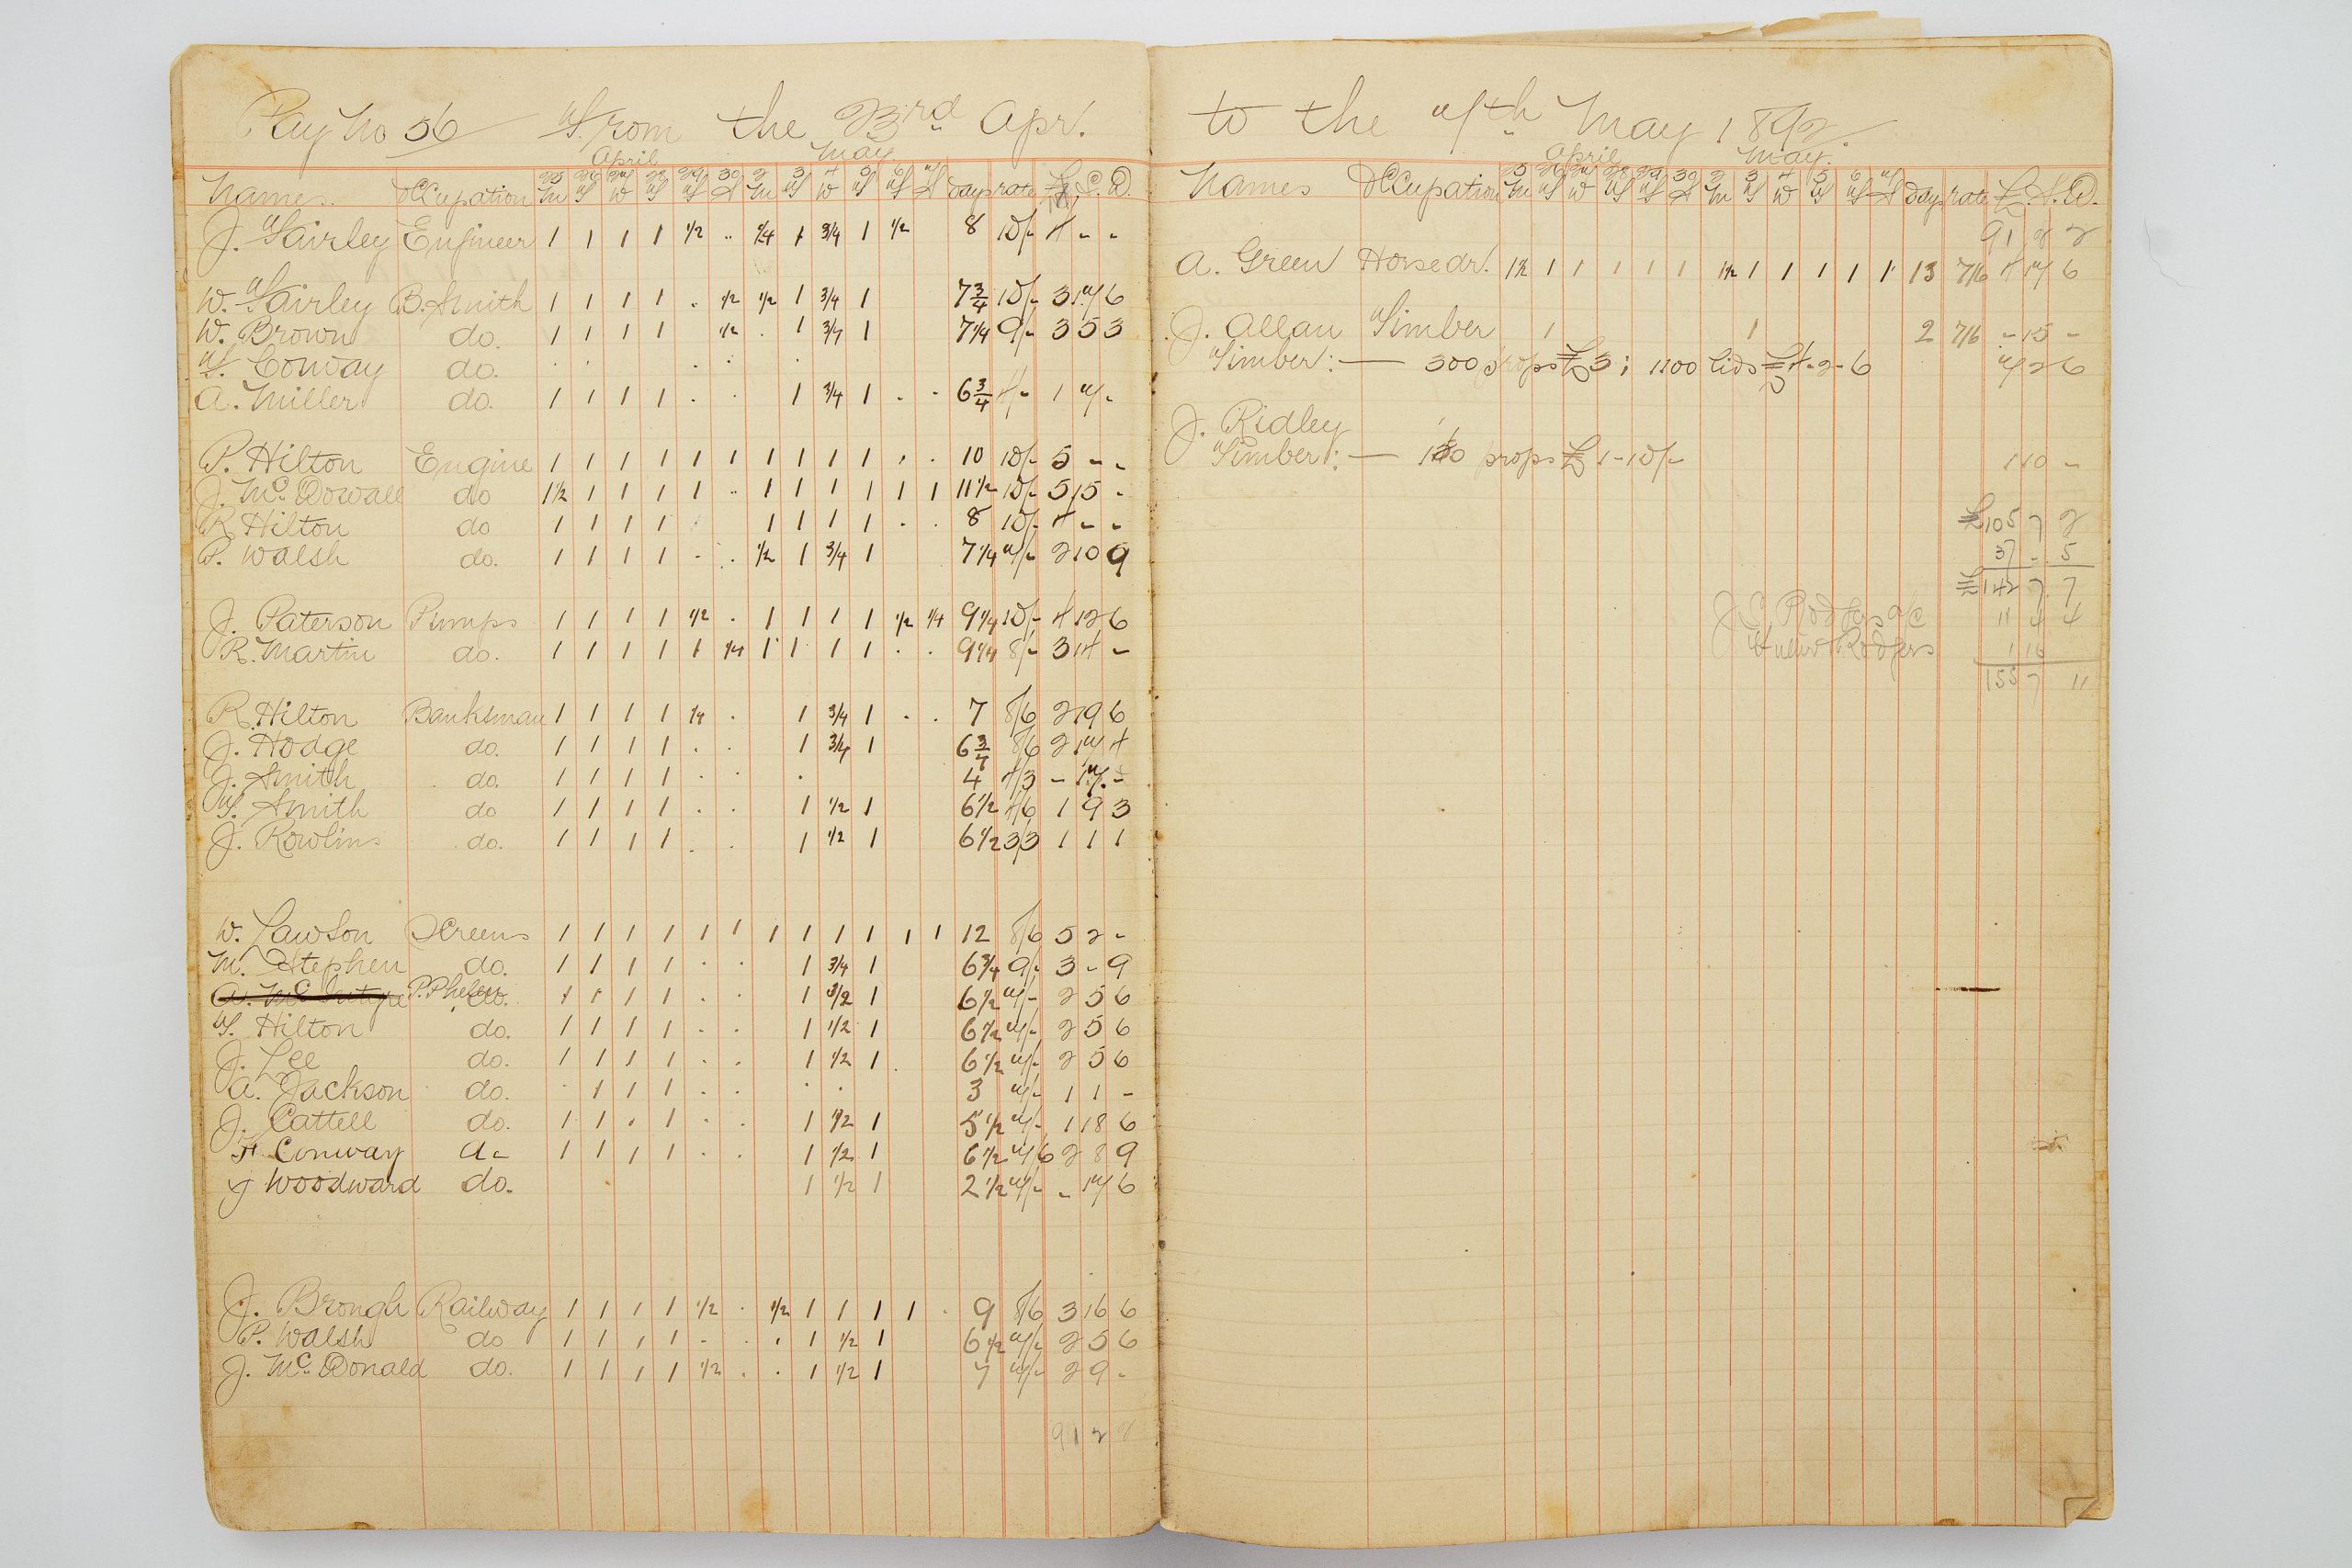 Pay No 56 From the 23rd Apr.
April May
Names. Occupation 25 M 26 T 27 W 28 T 29 F 30 S 2 M 3 T 4 W 5 T 6 F 7 S Days rate £ S. D.
J. Fairley Engineer 1 1 1 1 1/2 .. 1/4 1 3/4 1 1/2 8 10/- 4 - -
W. Fairley B. Smith 1 1 1 1 . 1/2 1/2 1 3/4 1 7 3/4 10/- 3 17 6
W. Brown do. 1 1 1 1 1/2 . 1 3/4 1 7 1/4 9/- 3 5 3
T. Conway do. . . . . .
A. Miller do. 1 1 1 1 . . 1 3/4 1 . . 6 3/4 4/- 1 7 -
P. Hilton Engine 1 1 1 1 1 1 1 1 1 1 . . 10 10/- 5 - -
J. McDowall do 1 1/2 1 1 1 1 .. 1 1 1 1 1 1 11 1/2 10/- 5 15 -
R. Hilton do 1 1 1 1 1 1 1 1 . . 8 10/- 4 - -
P. Walsh do. 1 1 1 1 . . 1/2 1 3/4 1 7 1/4 7/- 2 10 9
J. Paterson Pumps 1 1 1 1 1/2 . 1 1 1 1 1/2 1/4 9 1/4 10/- 4 12 6
R. Martin do. 1 1 1 1 1 1/4 1 1 1 1 . . 9 1/4 8/- 3 14 -
R. Hilton Banksman 1 1 1 1 1/4 . 1 3/4 1 . . 7 8/6 2 19 6
J. Hodge do. 1 1 1 1 . . 1 3/4 1 6 3/4 8/6 2 17 4
J. Smith do. 1 1 1 1 . . . 4 4/3 - 17 -
T. Smith do 1 1 1 1 . . 1 1/2 1 6 1/2 4/6 1 9 3
J. Rowlins do. 1 1 1 1 . . 1 1/2 1 6 1/2 3/3 1 1 1
W. Lawson Screens 1 1 1 1 1 1 1 1 1 1 1 1 12 8/6 5 2 -
M. Stephen do. 1 1 1 1 . . 1 3/4 1 6 3/4 9/- 3 - 9
A. McIntyre P. Phelan do. 1 1 1 1 . . 1 1/2 1 6 1/2 7/- 2 5 6
T. Hilton do. 1 1 1 1 . . 1 1/2 1 6 1/2 7/- 2 5 6
J. Lee do. 1 1 1 1 . . 1 1/2 1 . 6 1/2 7/- 2 5 6
A. Jackson do. . 1 1 1 . . . . 3 7/- 1 1 -
J. Cattell do. 1 1 . 1 . . 1 1/2 1 5 1/2 7/- 1 18 6
H Conway 1 1 1 1 . . 1 1/2 1 6 1/2 7/6 2 8 9
J Woodward do. 1 1/2 1 2 1/2 7/- - 17 6
J. Brough Railway 1 1 1 1 1/2 . 1/2 1 1 1 1 . 9 8/6 3 16 6
P. Walsh do 1 1 1 1 . . . 1 1/2 1 6 1/2 7/- 2 5 6
J. McDonald do. 1 1 1 1 1/2 . . 1 1/2 1 7 7/- 2 9 -
91 2 2
to the 7th May 1892.
April May.
Names Occupation 25 M 26 T 27 W 28 T 29 F 30 S 2 M 3 T 4 W 5 T 6 F 7 S Days rate £. S. D.
91 2 2
A. Green Horse dr. 1 1/2 1 1 1 1 1 1 1/2 1 1 1 1 1 13 7/6 4 17 6
J. Allan Timber 1 1 2 7/6 - 15 -
Timber: — 300 props £3; 1100 lids £4-2-6 7 2 6
J. Ridley
Timber: — 150 props £1-10/- 1 10 -
£105 7 2
37 - 5
£142 7 7
J. C. Rodgers a/c 11 4 4
Rodgers 1 16
155 7 11